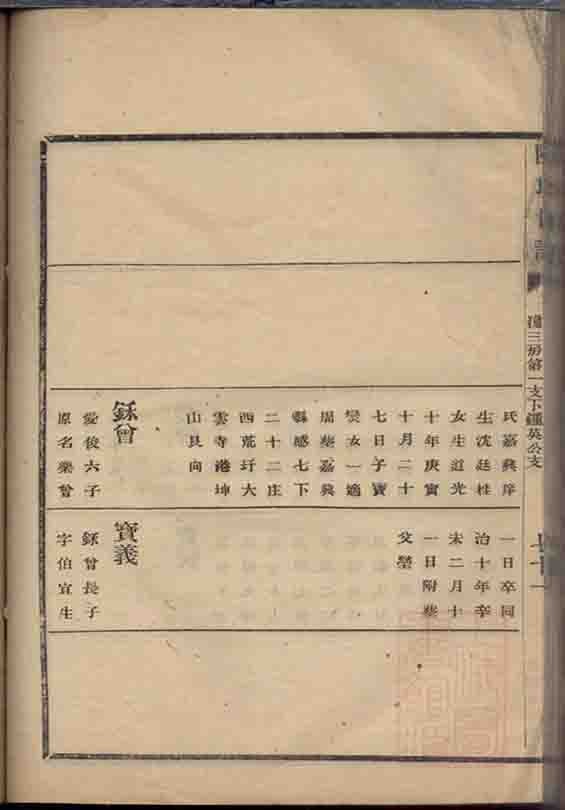 三房第一支下鍾英公支
氏嘉興庠
生沈廷桂
女生道光
十年庚寅
十月二十
七日子寶
女一適
周葬嘉興
縣感七下
二十二庄
西荒圩大
雲寺港坤
山艮向
銤曾
愛俊六子
原名樂曾
一日卒同
治十年辛
未二月十
一日附葬
父塋
寶義
銤曾長子
字伯宜生